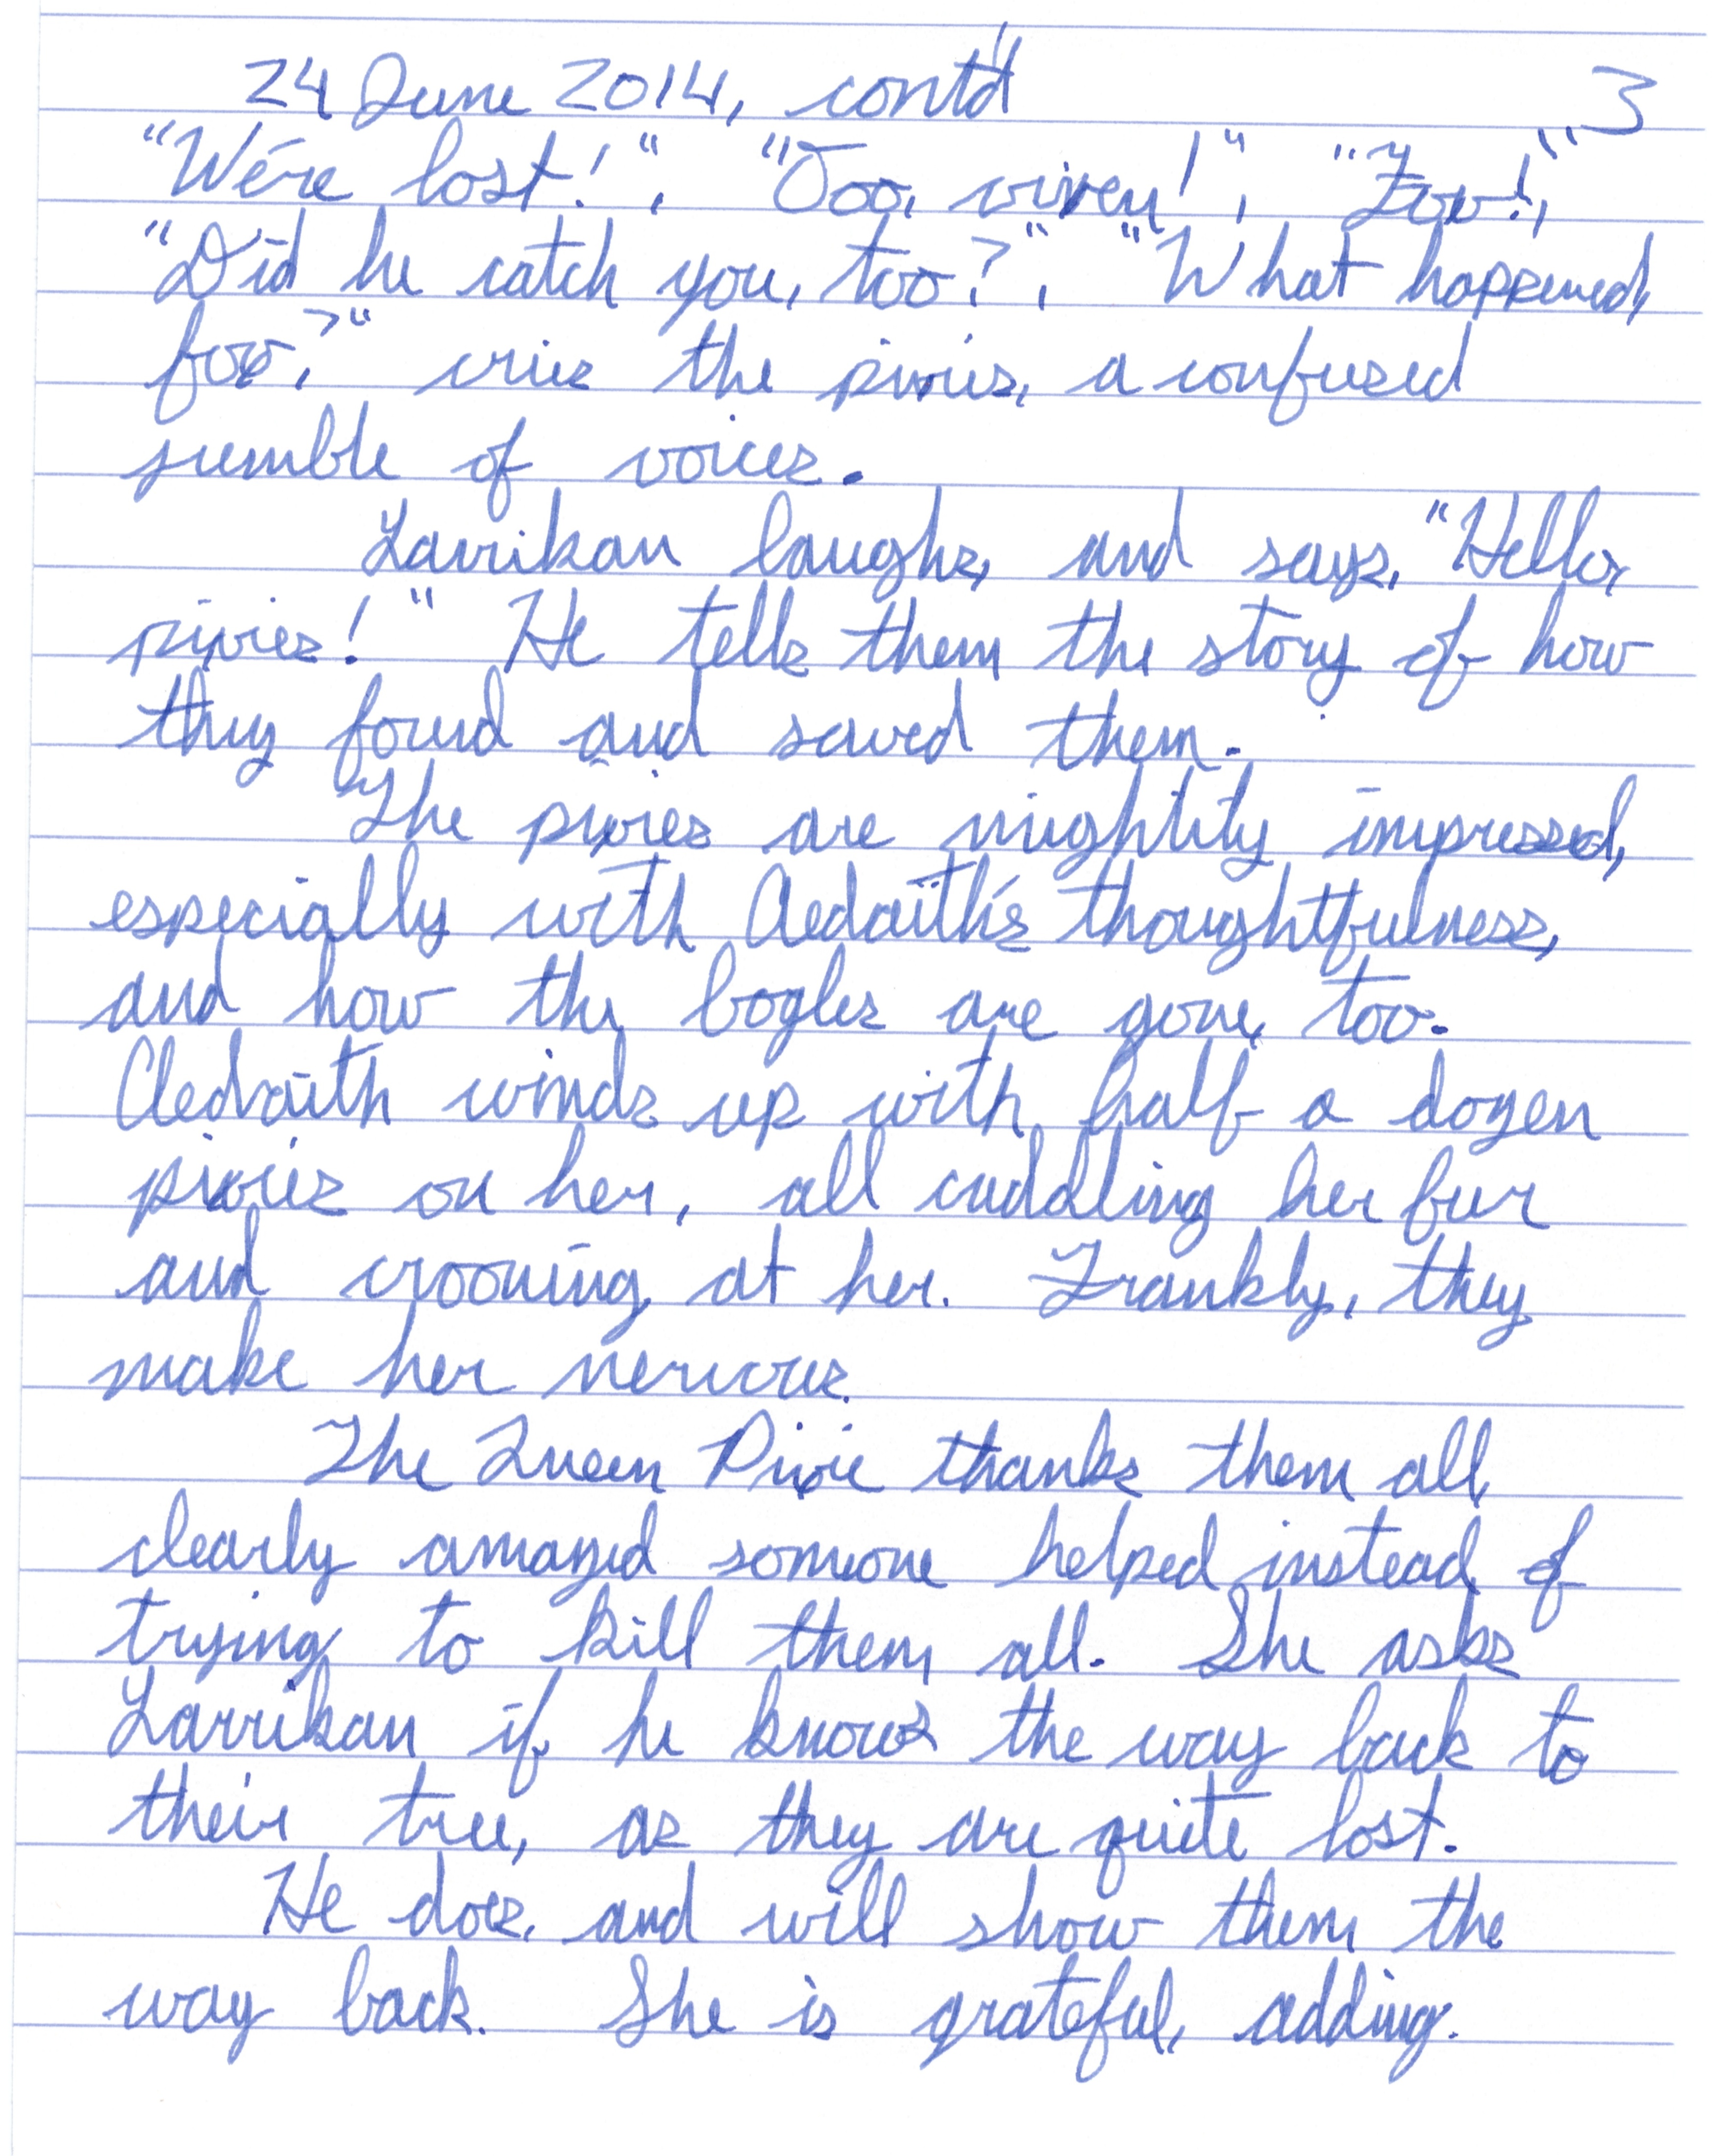 24 June 2014, cont'd 3
"We're lost!", "Ooo, vixen!", "Fox!",
"Did he catch you, too?", "What happened,
fox?" cries the pixies, a confused
jumble of voices.
Larrikan laughs, and says, "Hello,
pixies!" He tells them the story of how
they found and saved them.
The pixies are mightily impressed,
especially with Aedaith's thoughtfulness,
and how the bogles are gone, too.
Aedaith winds up with half a dozen
pixies on her, all cuddling her fur
and crooning at her. Frankly, they
make her nervous.
The Queen Pixie thanks them all,
clearly amazed someone helped instead of
trying to kill them all. She asks
Larrikan if he knows the way back to
their tree, as they are quite lost.
He does, and will show them the
way back. She is grateful, adding.